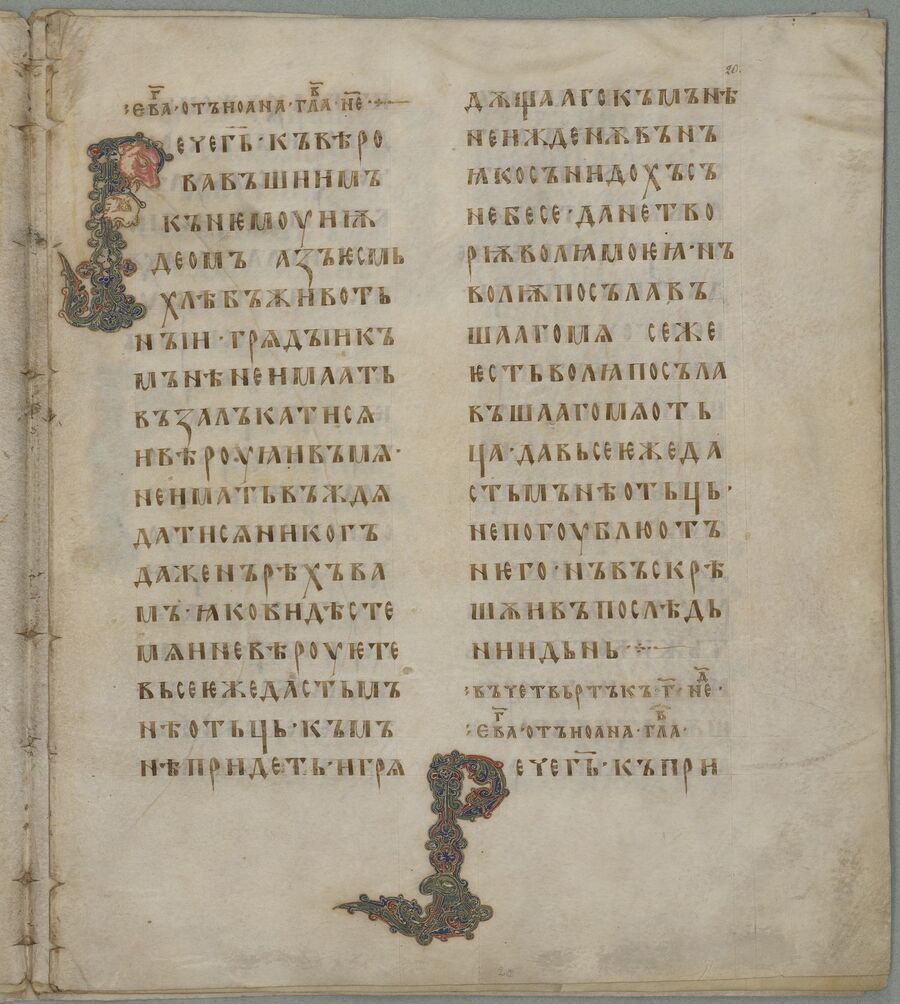 20.
:ЕВ҃А·ОТЪИОАНА·ГЛ҃А·НЕ҃·
РЕЧЕГЬ҃·КЪВѢРО
ВАВЪШИИМЪ
КЪНЮМОУИЮ
ДЕОМЪ АЗЪѤСМЬ
ХЛѢБЪЖИВОТЬ
НЪІИ·ГРѦДЪІИКЪ
МЪНѢНЕИМААТЬ
ВЪЗАЛЪКАТИСѦ
ИВѢРОУꙖИВЪМѦ·
НЕИМАТЬВЪЖДѦ
ДАТИСѦНИКОГЪ
ДАЖЕНЪРѢХЪВА
МЪ·ꙖКОВИДѢСТЕ
МѦИНЕВѢРОУѤТЕ
ВЬСЕѤЖЕДАСТЬМЪ
НѢОТЬЦЬ·КЪМЪ
НѢПРИДЕТЬ·ИГРѦ
ДѪЩААГОКЪМЪНѢ
НЕИЖДЕНѪВЪНЪ
ꙖКОСЪНИДОХЪСЪ
НЕБЕСЕ·ДАНЕТВО
РѬВОЛѨМОЮѨ·НЪ
ВОЛѬПОСЪЛАВЪ
ШААГОМѦ СЕЖЕ
ѤСТЬВОЛꙖПОСЪЛА
ВЪШААГОМѦОТЬ
ЦА·ДАВЬСЕѤЖЕДА
СТЬМЪНѢОТЬЦЬ·
НЕПОГОУБЛЮОТЪ
НѤГО·НЪВЪСКРѢ
ШѪИВЪПОСЛѢДЬ
НИИДЬНЬ·
:ВЪЧЕТВЬРТЪКЪ·Г҃·НЕ҃·Д
:ЕВ҃А·ОТЪИОАНА·ГЛ҃А·
РЕЧЕГЬ҃·КЪПРИ